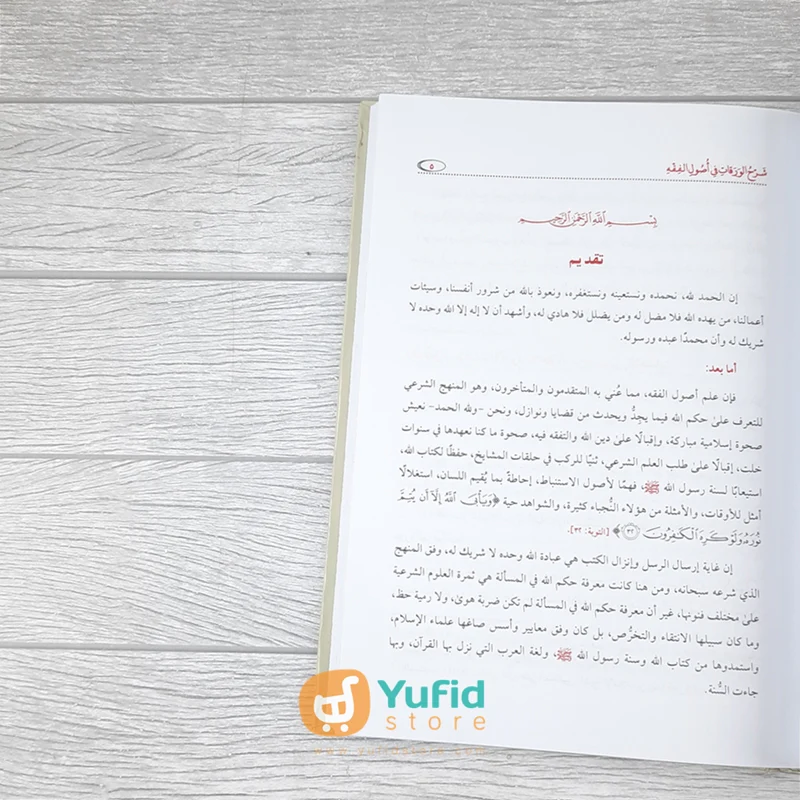 شرح الورقات في أصول الفقه ٥
بسم الله الرحمن الرحيم
تقديم
إن الحمد لله، نحمده ونستعينه ونستغفره، ونعوذ بالله من شرور أنفسنا، وسيئات
أعمالنا، من يهده الله فلا مضل له ومن يضلل فلا هادي له، وأشهد أن لا إله إلا الله وحده لا
شريك له وأن محمدًا عبده ورسوله.
أما بعد:
فإن علم أصول الفقه، مما عُني به المتقدمون والمتأخرون، وهو المنهج الشرعي
للتعرف على حكم الله فيما يجِدُّ ويحدث من قضايا ونوازل، ونحن -ولله الحمد- نعيش
صحوة إسلامية مباركة، وإقبالًا على دين الله والتفقه فيه، صحوة ما كنا نعهدها في سنوات
خلت، إقبالًا على طلب العلم الشرعي، ثنيًا للركب في حلقات المشايخ، حفظًا لكتاب الله،
استيعابًا لسنة رسول الله ﷺ، فهمًا لأصول الاستنباط، إحاطةً بما يُقيم اللسان، استغلالًا
أمثل للأوقات، والأمثلة من هؤلاء النُّجباء كثيرة، والشواهد حية ﴿وَيَأْبَى اللَّهُ إِلَّا أَن يُتِمَّ
نُورَهُ وَلَوْ كَرِهَ الْكَافِرُونَ ٣٢﴾ [التوبة: ٣٢].
إن غاية إرسال الرسل وإنزال الكتب هي عبادة الله وحده لا شريك له، وفق المنهج
الذي شرعه سبحانه، ومن هنا كانت معرفة حكم الله في المسألة هي ثمرة العلوم الشرعية
على مختلف فنونها، غير أن معرفة حكم الله في المسألة لم تكن ضربة هوى، ولا رمية حظ،
وما كان سبيلها الانتقاء والتخرُّص، بل كان وفق معايير وأسس صاغها علماء الإسلام،
واستمدوها من كتاب الله وسنة رسول الله ﷺ، ولغة العرب التي نزل بها القرآن، وبها
جاءت السُّنة.
Yufid
store